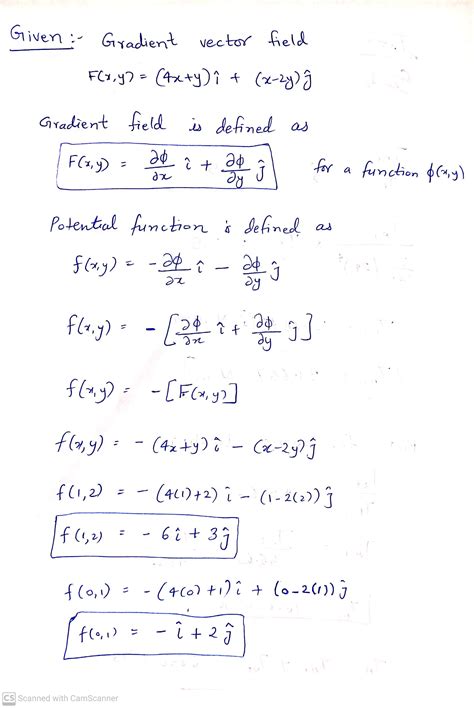 Given :- Gradient vector field
F(x,y) = (4x+y) î + (x-2y) ĵ
Gradient field is defined as
F(x,y) = ∂ϕ/∂x î + ∂ϕ/∂y ĵ for a function ϕ(x,y)
Potential function is defined as
f(x,y) = -∂ϕ/∂x î - ∂ϕ/∂y ĵ
f(x,y) = - [∂ϕ/∂x î + ∂ϕ/∂y ĵ]
f(x,y) = -[F(x,y)]
f(x,y) = - (4x+y) î - (x-2y) ĵ
f(1,2) = - (4(1)+2) î - (1-2(2)) ĵ
f(1,2) = - 6 î + 3 ĵ
f(0,1) = - (4(0)+1) î + (0-2(1)) ĵ
f(0,1) = - î + 2 ĵ
CS Scanned with CamScanner